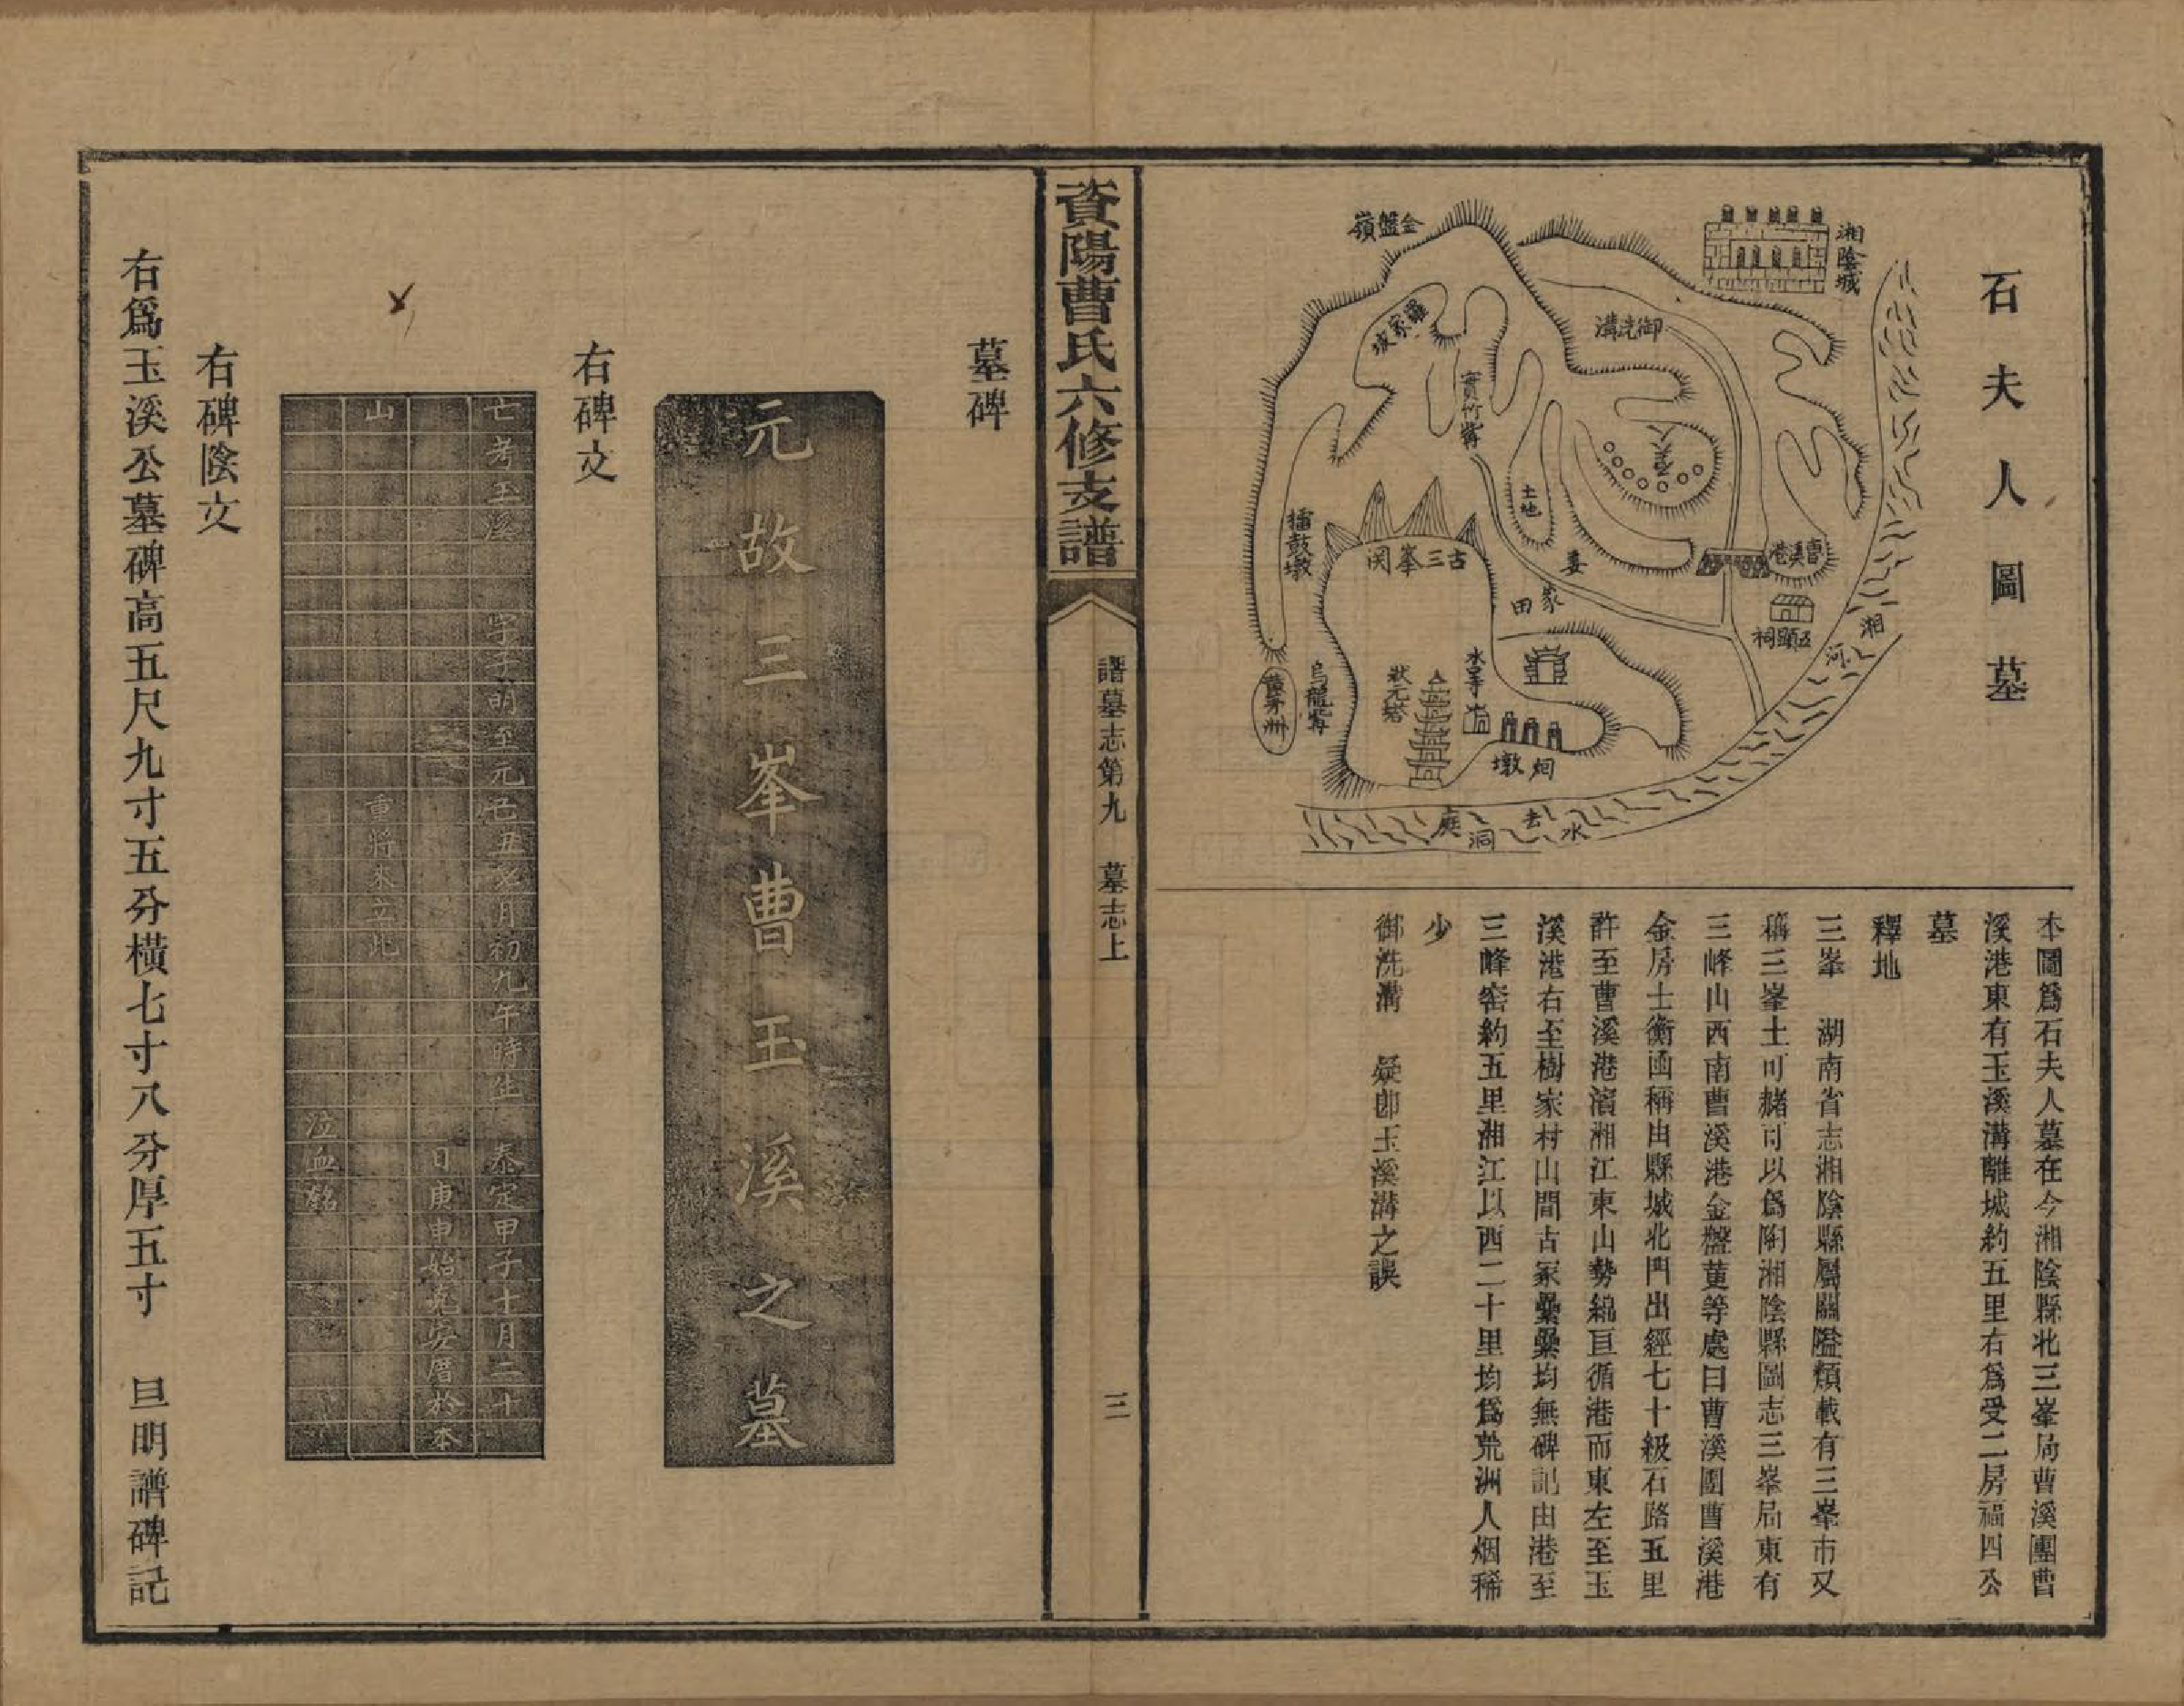 石夫人圖墓
湘陰城
金盤嶺
羅家坡
御洗溝
實竹嘴
石夫人
土地
擂鼓墩
古三峯関
婁家田
曹溪港
五顯祠
湘河
黃茅洲
烏龍嘴
狀元塔
水口寺
烟墩
水去洞庭
本圖爲石夫人墓在今湘陰縣北三峯局曹溪團曹
溪港東有玉溪溝離城約五里右爲受二房福四公
墓
釋地
三峯　湖南省志湘陰縣屬關隘類載有三峯市又
稱三峯土可赭可以爲陶湘陰縣圖志三峯局東有
三峰山西南曹溪港金盤黃等處曰曹溪團曹溪港
金房士衡函稱由縣城北門出經七十級石路五里
許至曹溪港濱湘江東山勢綿亘循港而東左至玉
溪港右至樹家村山間古冢纍纍均無碑記由港至
三峰窑約五里湘江以西二十里均爲荒洲人烟稀
少
御洗溝　疑卽玉溪溝之誤
資陽曹氏六修支譜
譜墓志第九　墓志上
三
墓碑
元故三峯曹玉溪之墓
右碑文
亡考玉溪　字子明至元己丑　月初九午時生　泰定甲子十月二十
日庚申始克安厝於本
山　重將來立此
泣血銘
右碑陰文
右爲玉溪公墓碑高五尺九寸五分橫七寸八分厚五寸　旦明譜碑記